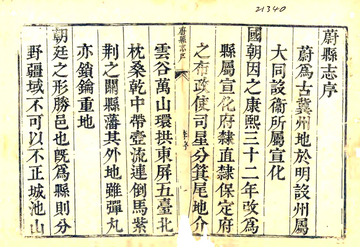 21340
蔚縣志序
蔚為古冀州地於明設州屬
大同設衛所屬宣化
國朝因之康熙三十二年改為
縣屬宣化府隸直隸保定府
之布政使司星分箕尾地介
蔚縣志序
雲谷萬山環拱東屏五臺北
枕桑乾中帶壺流連倒馬紫
荊之關縣藩其外地雖彈丸
亦鎖鑰重地
朝廷之形勝邑也既為縣則分
野疆域不可以不正城池山